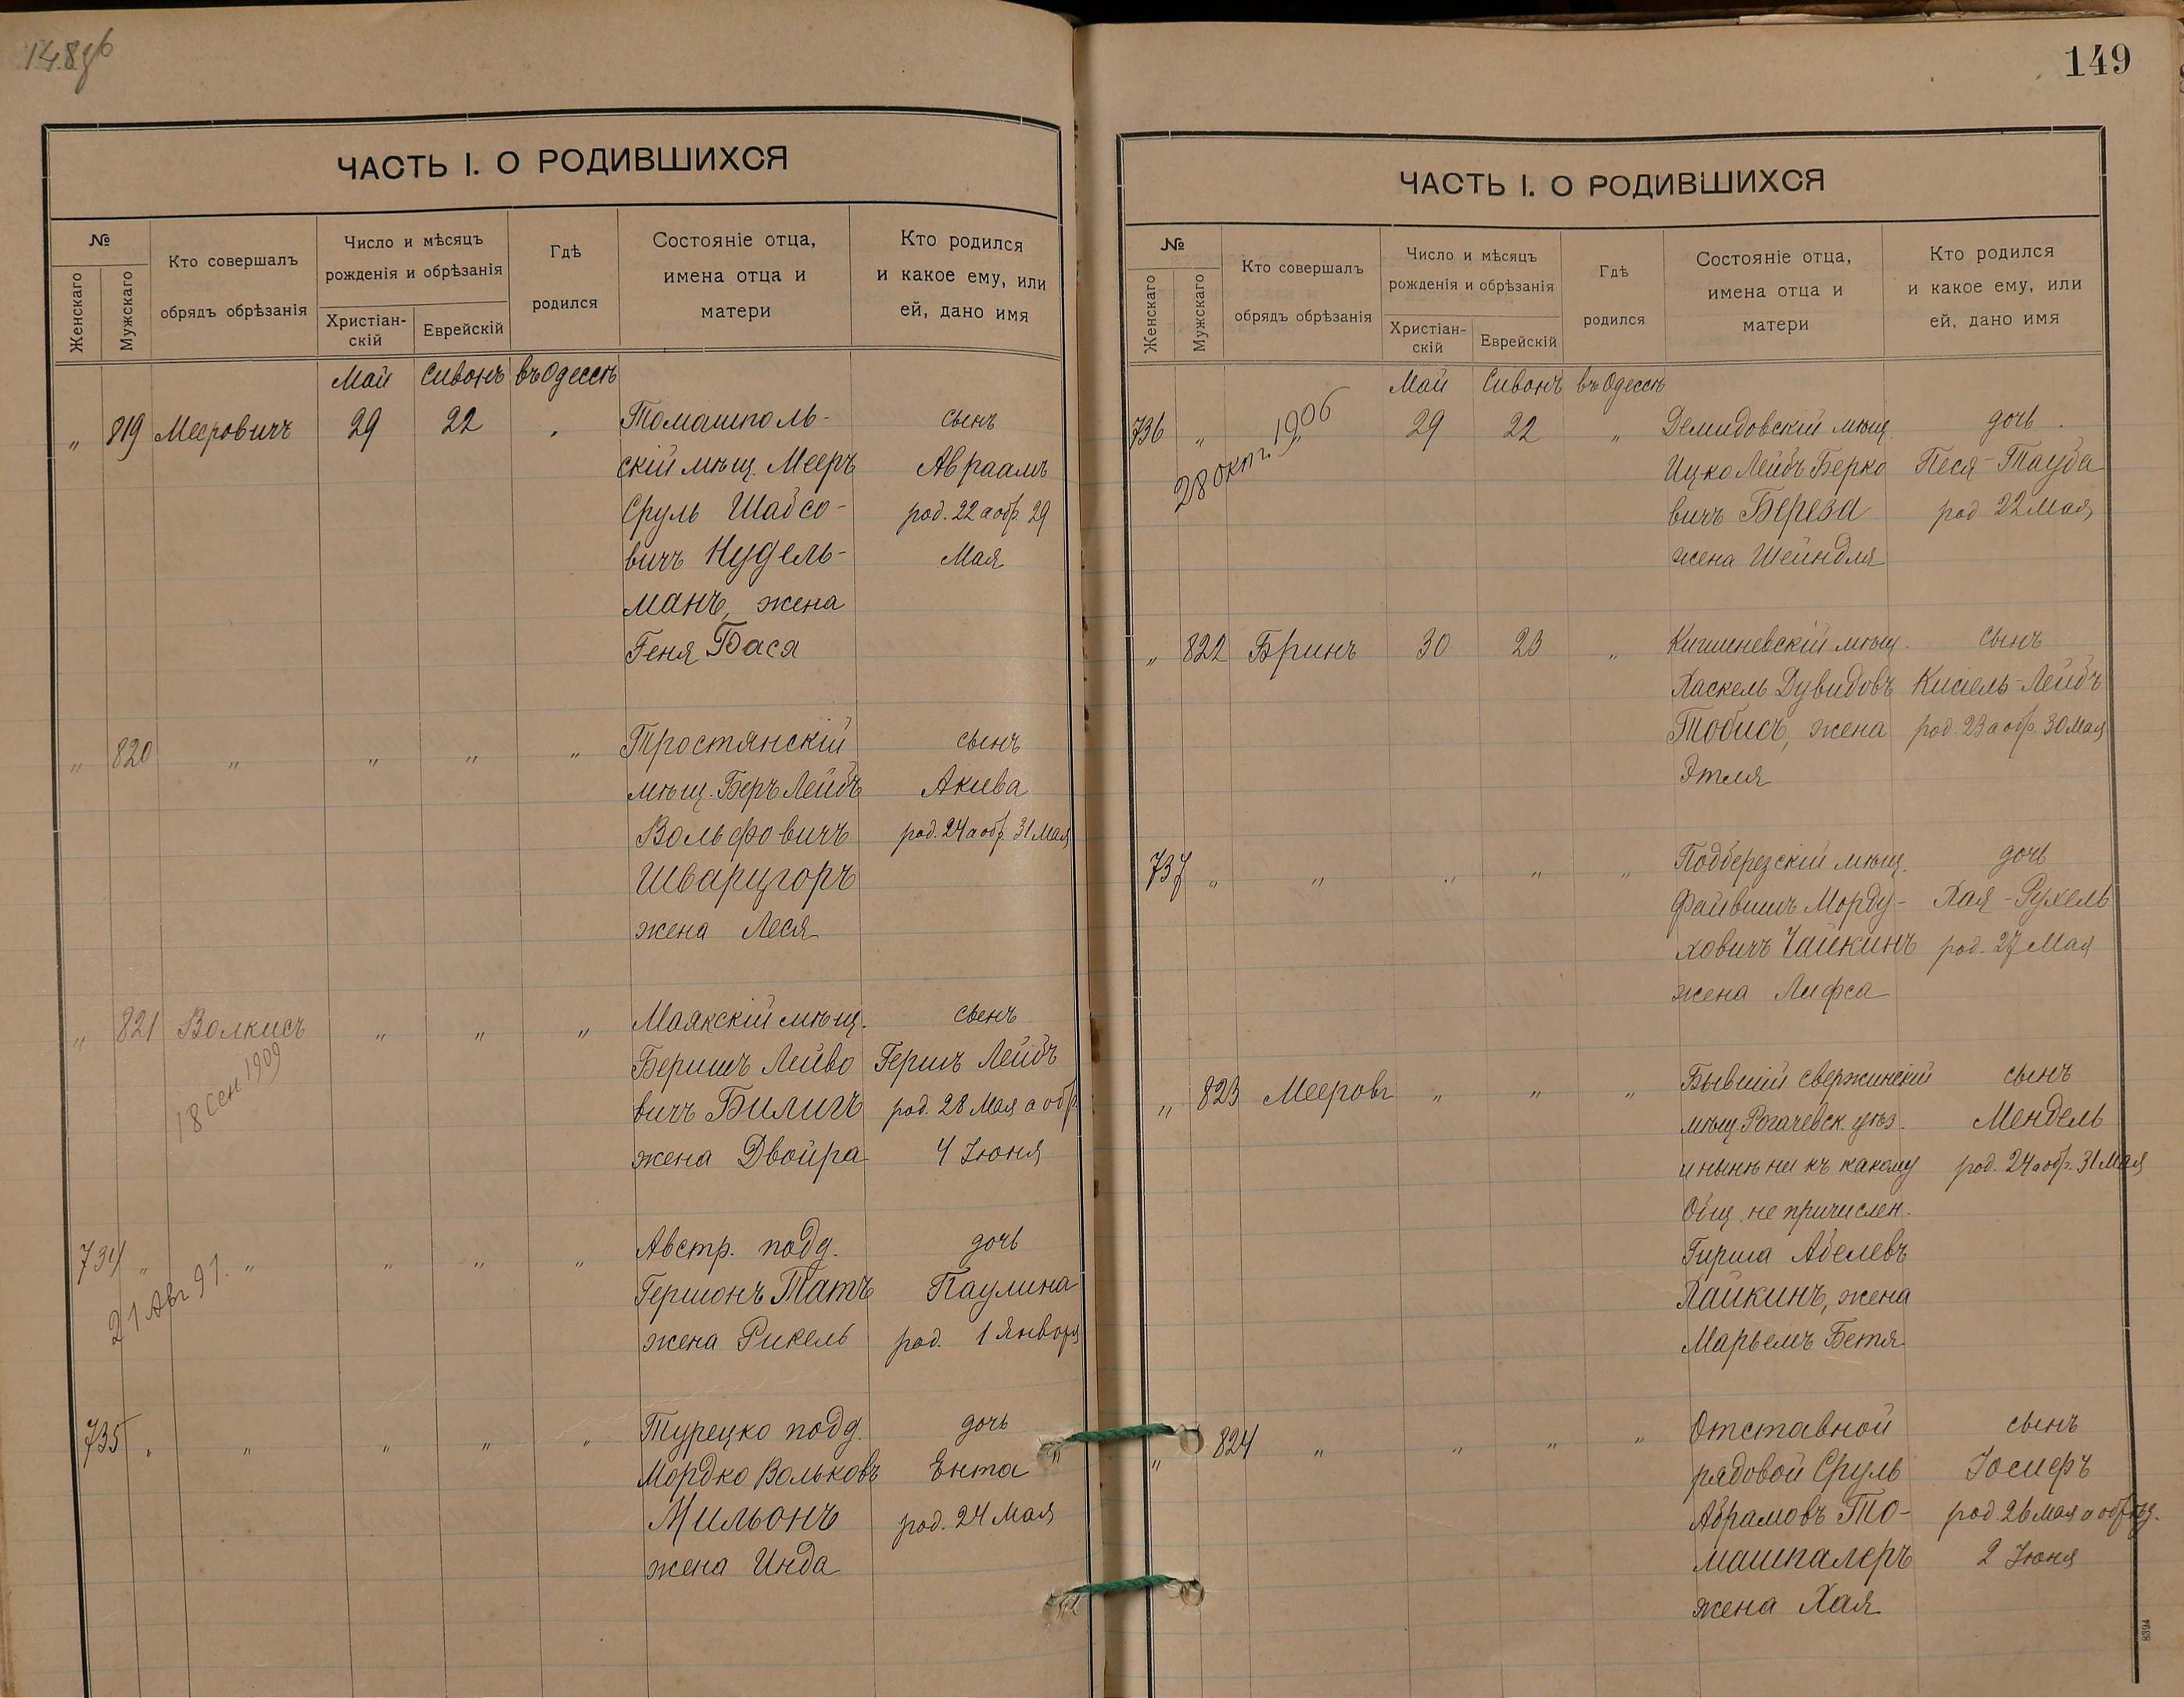 148 об
ЧАСТЬ I. О РОДИВШИХСЯ
№
Женскаго
Мужскаго
Кто совершалъ
обрядъ обрѣзанія
Число и мѣсяцъ
рожденія и обрѣзанія
Христіан-
скій
Еврейскій
Гдѣ
родился
Состояніе отца,
имена отца и
матери
Кто родился
и какое ему, или
ей, дано имя
Май Сивонъ въ Одессѣ
„ 819 Мееровичъ 29 22 „ Томашполь- сынъ
скій мѣщ. Мееръ Авраамъ
Сруль Шабсо- род. 22 а обр. 29
вичъ Нудель- Мая
манъ, жена
Геня Бася
„ 820 „ „ „ „ Тростянскій сынъ
мѣщ. Беръ Лейбъ Акива
Вольфовичъ род. 24 а обр. 31 Мая
Шварцгоръ
жена Леся
„ 821 Волкисъ „ „ „ Маякскій мѣщ. сынъ
18 Сен 1909
Беришъ Лейбо Гершъ Лейбъ
вичъ Билигъ род. 28 Мая а обр.
жена Двойра 4 Іюня
734 „ „ „ „ „ Австр. подд. дочь
21 Авг 91.
Гершонъ Татъ Паулина
жена Рикель род. 1 Января
735 „ „ „ „ „ Турецко подд. дочь
Мордко Вольковъ Ента
Мильонъ род. 24 Мая
жена Инда
149
ЧАСТЬ I. О РОДИВШИХСЯ
№
Женскаго
Мужскаго
Кто совершалъ
обрядъ обрѣзанія
Число и мѣсяцъ
рожденія и обрѣзанія
Христіан-
скій
Еврейскій
Гдѣ
родился
Состояніе отца,
имена отца и
матери
Кто родился
и какое ему, или
ей, дано имя
Май Сивонъ въ Одессѣ
736 „ „ 29 22 „ Демидовскій мѣщ. дочь
28 окт. 1906
Ицко Лейбъ Берко Песя-Тауба
вичъ Береза род 22 Мая
жена Шейндля
„ 822 Бринъ 30 23 „ Кишиневскій мѣщ. сынъ
Хаскель Дувидовъ Кисіель-Лейбъ
Тобисъ, жена род. 23 а обр. 30 Мая
Этля
737 „ „ „ „ „ Подберезскій мѣщ. дочь
Файвишъ Морду- Хая-Рухель
ховичъ Чайкинъ род. 27 Мая
жена Лифса
„ 823 Мееров „ „ „ Бывшій свержинскій сынъ
мѣщ. Рогачевск. уѣз. Мендель
и нынѣ ни къ какому род. 24 а обр. 31 Мая
Общ. не причислен.
Гирша Абелевъ
Хайкинъ, жена
Марьемъ Бетя
„ 824 „ „ „ „ Отставной сынъ
рядовой Сруль Іосифъ
Абрамовъ То- род. 26 мая а обрѣз.
машпалеръ 2 Іюня
жена Хая
8394